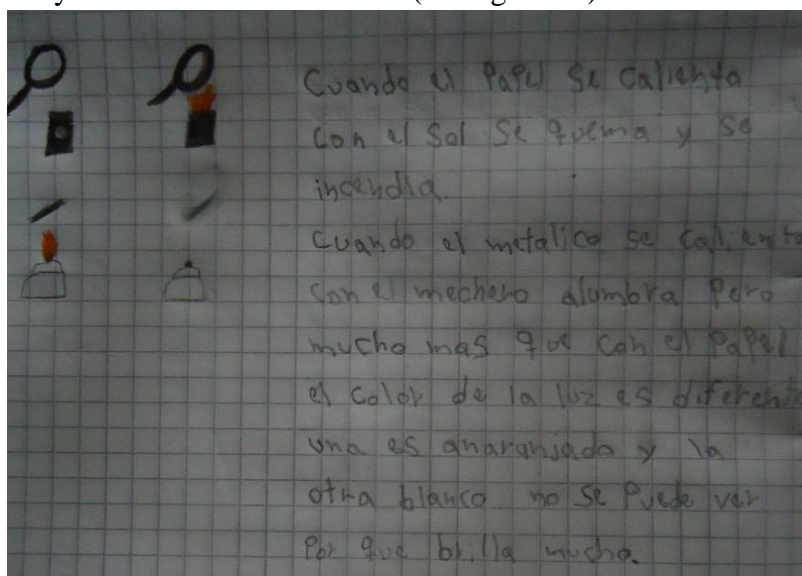 Cuando el Papel se calienta
con el Sol se quema y se
incendia.
Cuando el metalico se calienta
con el mechero alumbra Pero
mucho mas que con el Papel
el color de la luz es diferente
una es anaranjada y la
otra blanco no se Puede ver
Por que brilla mucho.